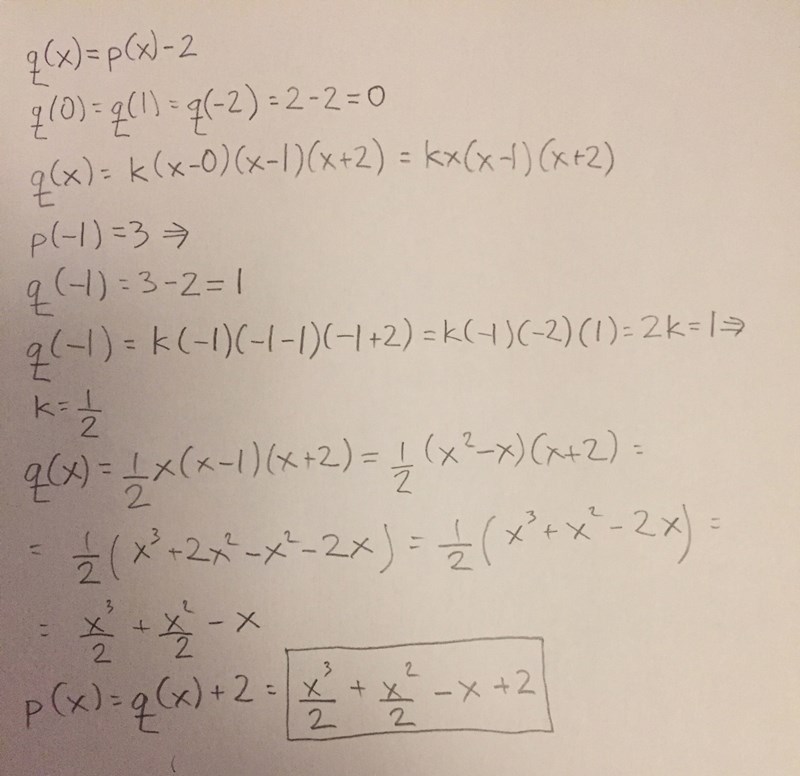 q(x)=p(x)-2
q(0)=q(1)=q(-2)=2-2=0
q(x)=k(x-0)(x-1)(x+2)=kx(x-1)(x+2)
p(-1)=3⇒
q(-1)=3-2=1
q(-1)=k(-1)(-1-1)(-1+2)=k(-1)(-2)(1)=2k=1⇒
k=1/2
q(x)=1/2x(x-1)(x+2)=1/2(x²-x)(x+2)=
=1/2(x³+2x²-x²-2x)=1/2(x³+x²-2x)=
=x³/2+x²/2-x
p(x)=q(x)+2=x³/2+x²/2-x+2